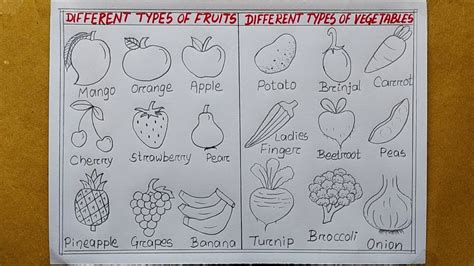 DIFFERENT TYPES OF FRUITS
Mango Orange Apple
Cherry Strawberry Pear
Pineapple Grapes Banana
DIFFERENT TYPES OF VEGETABLES
Potato Brinjal Carrot
Ladies
Finger Beetroot Peas
Turnip Broccoli Onion